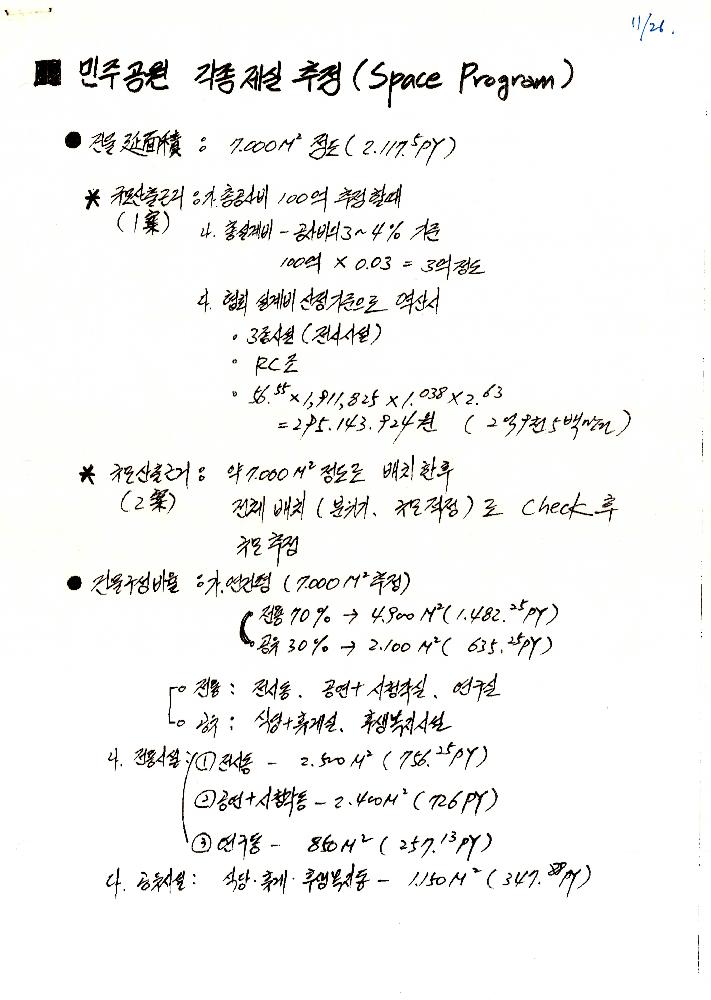 11/26.
■ 민주공원 각종제실 추정 (Space Program)
● 건물 延面積 : 7.000M² 정도 (2.117.⁵PY)
* 규모산출근거 : 가. 총공사비 100억 추정할때
(1案) 나. 총설계비 - 공사비의 3~4% 기준
100억 × 0.03 = 3억정도
다. 협회 설계비 산정기준으로 역산시
∘ 3종시설 (전시시설)
∘ RC조
∘ 56.⁵⁵ × 1,911,825 × 1.⁰³⁸ × 2.⁶³
= 295.143.924원 (2억9천5백만원)
* 규모산출근거 : 약 7.000M² 정도로 배치한후
(2案) 전체 배치 (분위기, 규모적정)로 Check 후
규모 추정
● 건물구성비율 : 가. 연건평 (7.000M² 추정)
전용 70% → 4.900M² (1.482.²⁵PY)
공유 30% → 2.100M² ( 635.²⁵PY)
∘ 전용 : 전시동, 공연+시청각실, 연구실
∘ 공유 : 식당+휴게실, 후생복지시설
나. 전용시설 : ① 전시동 - 2.500M² (756.²⁵PY)
② 공연+시청각동 - 2.400M² (726PY)
③ 연구동 - 850M² (257.¹³PY)
다. 공유시설 : 식당·휴게·후생복지동 - 1.150M² (347.⁸⁸PY)